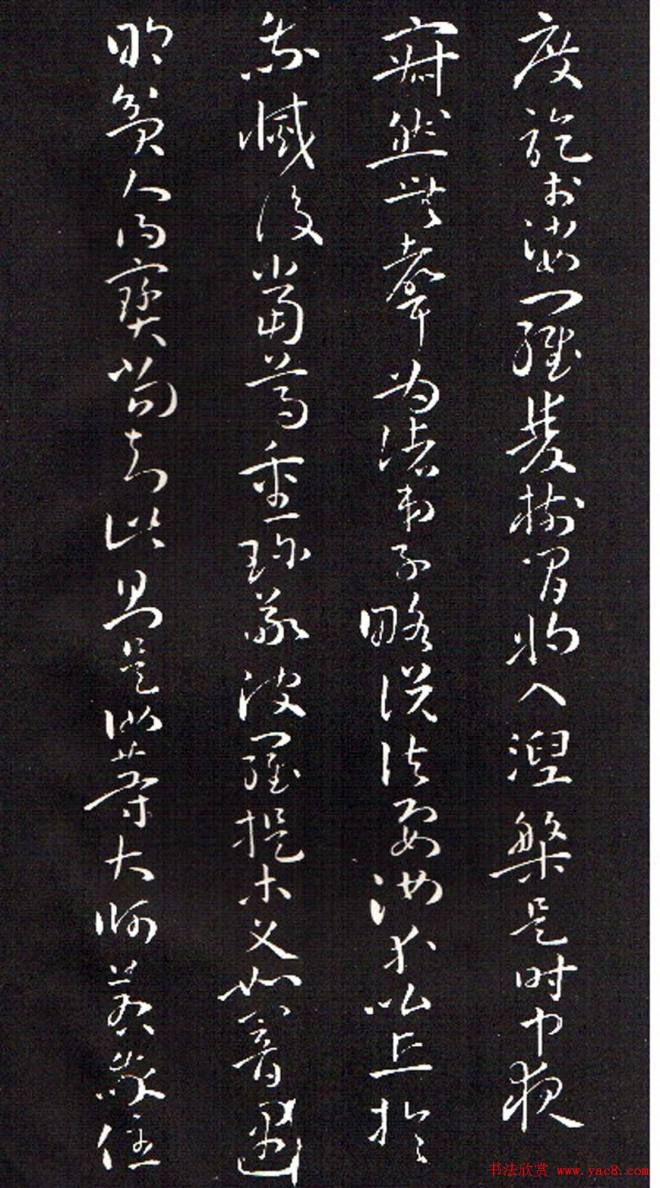 度訖於娑羅雙樹間將入涅槃是時中夜
寂然無聲為諸弟子略說法要汝等比丘於
我滅後當尊重珎敬波羅提木叉如闇遇
明貧人得寶當知此則是汝等大師若我住
书法欣赏 www.yac8.com